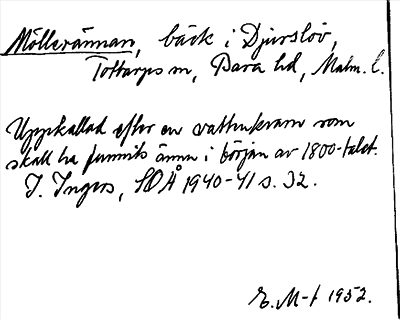 Möllerännan, bäck i Djurslöv,
Tottarps sn, Bara hd, Malm. l.
Uppkallad efter en vattenkvarn som
skall ha funnits ännu i början av 1800-talet.
I. Ingers, SOÅ 1940-41 s. 32.
E. M-t 1952.